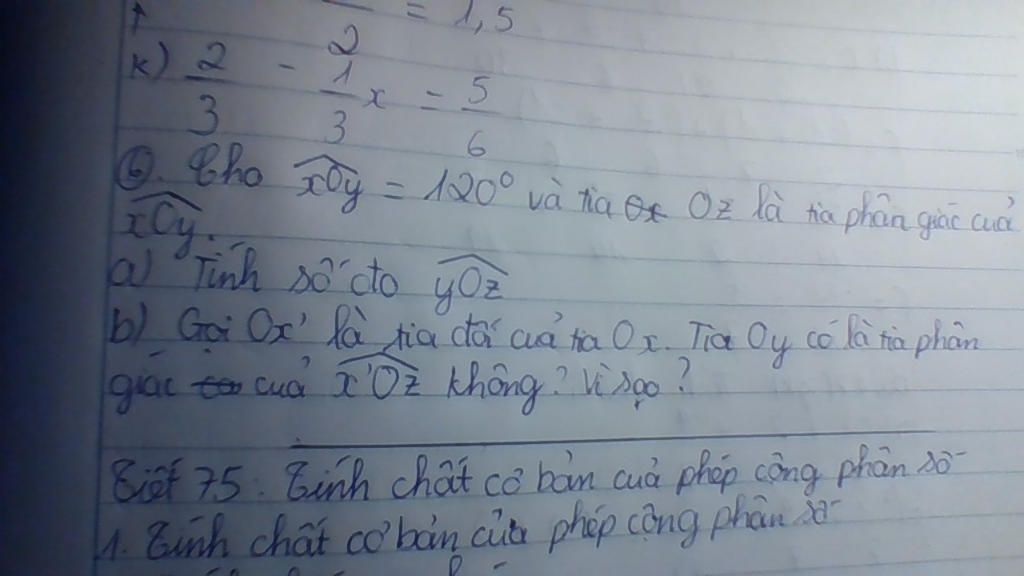 = 1,5
2
k) 2/3 - 1/3 x = 5/6
6. Cho xOy = 120° và tia Oz là tia phân giác cuả
xOy.
a) Tính số đo yOz
b) Gọi Ox' là tia đối cuả tia Ox. Tia Oy có là tia phân
giác cuả x'Oz không? Vì sao?
Tiết 75: Tính chất cơ bản cuả phép cộng phân số
1. Tính chất cơ bản của phép cộng phân số